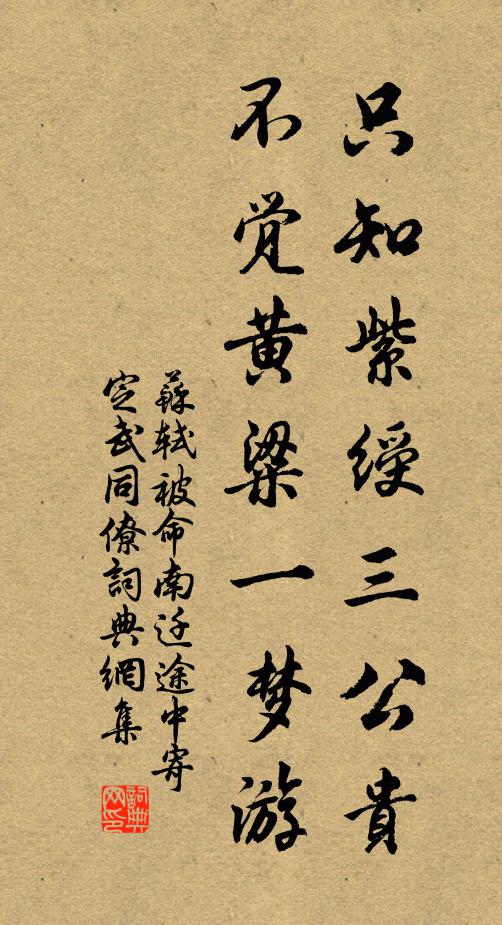 只知紫绶三公貴
不觉黄粱一梦游
蘇軾被命南迁途中寄
定武同僚詞典網集
詞典网印